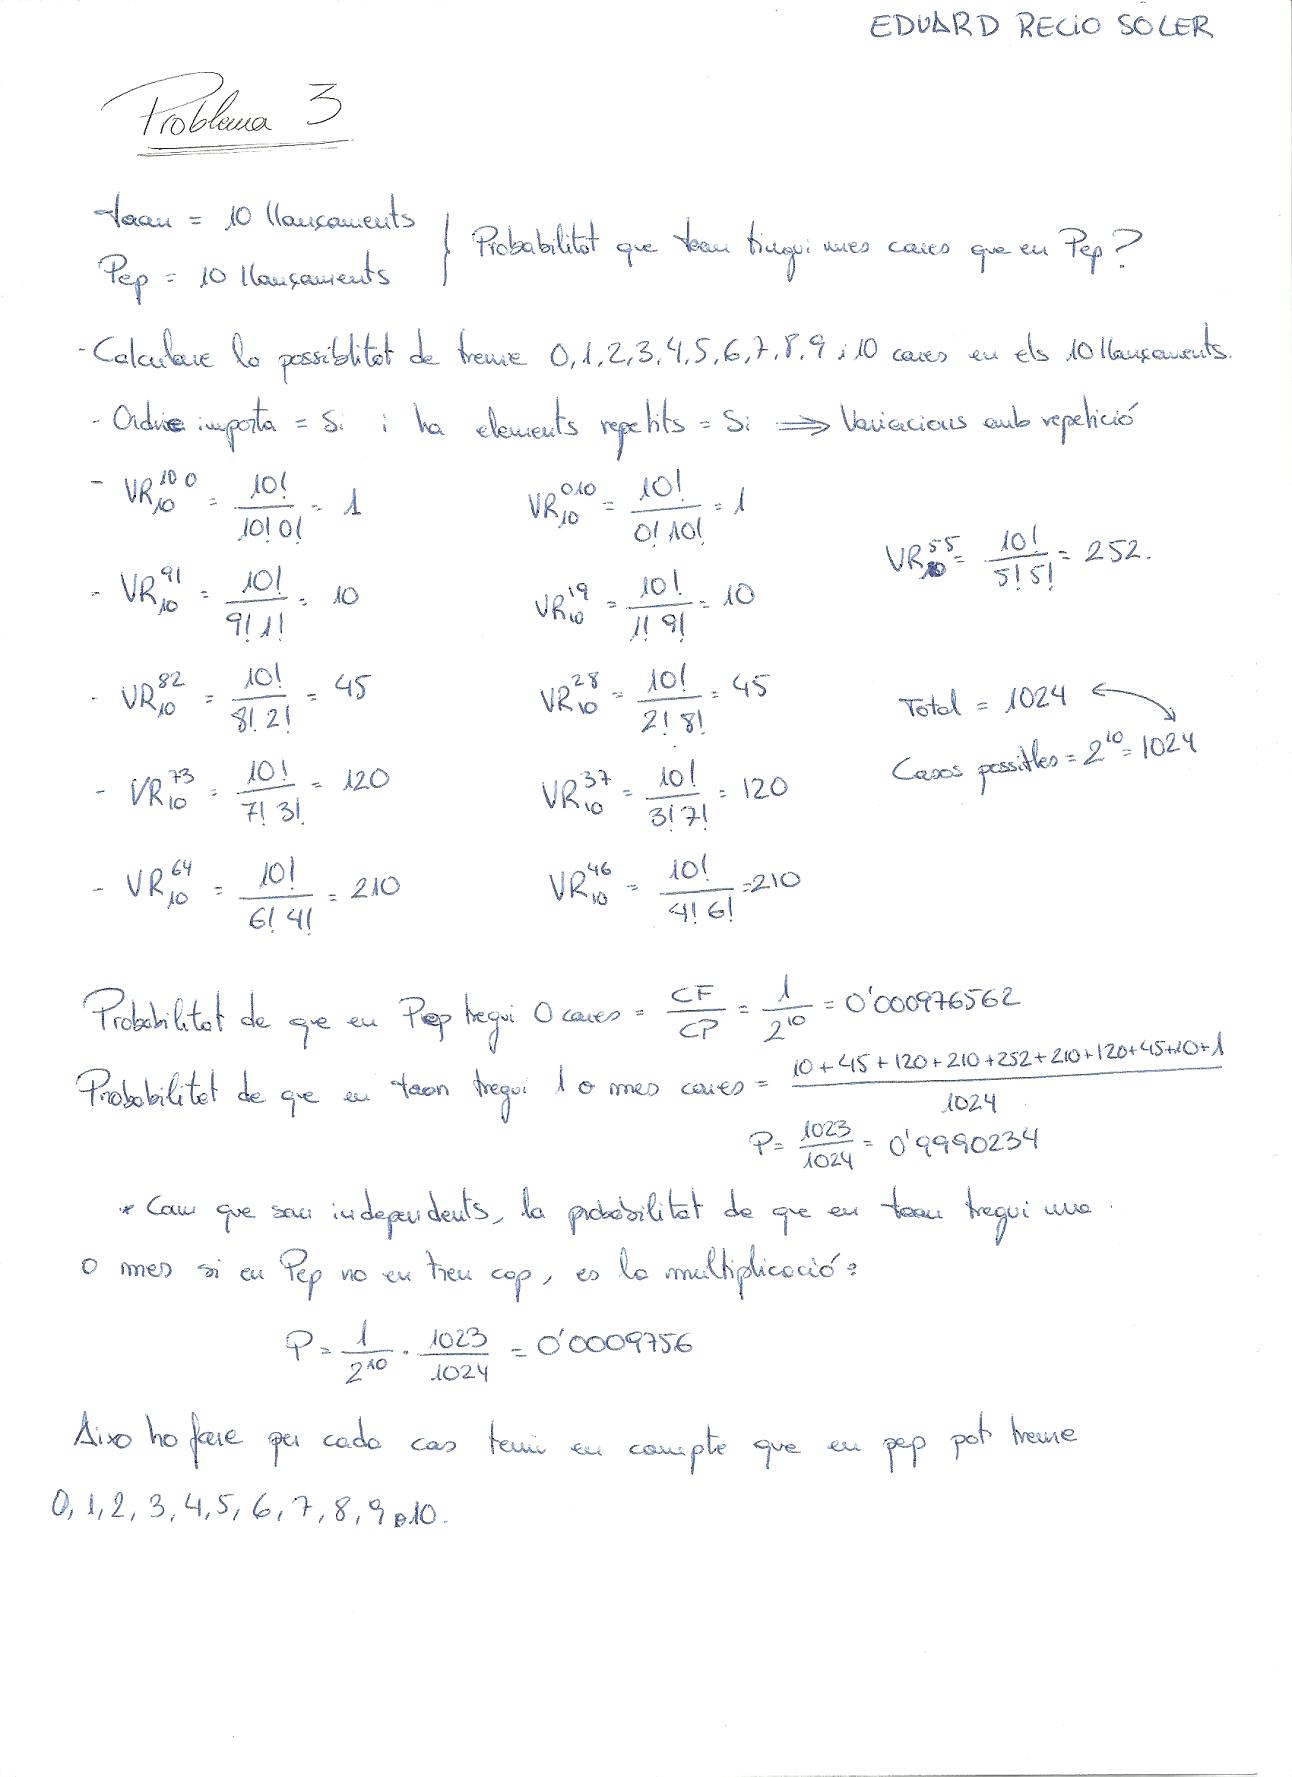 EDUARD RECIO SOLER
Problema 3
Joan = 10 llançaments
Pep = 10 llançaments
} Probabilitat que Joan tingui mes cares que en Pep?
- Calculare la possiblitat de treure 0,1,2,3,4,5,6,7,8,9 i 10 cares en els 10 llançaments.
- Ordre importa = Si i ha elements repetits = Si ⟹ Variacions amb repetició
- VR₁₀^{10 0} = 10!/(10! 0!) = 1    VR₁₀^{0 10} = 10!/(0! 10!) = 1
VR₁₀^{55} = 10!/(5! 5!) = 252.
- VR₁₀^{91} = 10!/(9! 1!) = 10    VR₁₀^{19} = 10!/(1! 9!) = 10
- VR₁₀^{82} = 10!/(8! 2!) = 45    VR₁₀^{28} = 10!/(2! 8!) = 45
Total = 1024
Casos possibles = 2^{10} = 1024
- VR₁₀^{73} = 10!/(7! 3!) = 120    VR₁₀^{37} = 10!/(3! 7!) = 120
- VR₁₀^{64} = 10!/(6! 4!) = 210    VR₁₀^{46} = 10!/(4! 6!) = 210
Probabilitat de que en Pep tregui 0 cares = CF/CP = 1/2^{10} = 0'000976562
Probabilitat de que en Joan tregui 1 o mes cares = (10+45+120+210+252+210+120+45+10+1)/1024
P = 1023/1024 = 0'9990234
* Com que son independents, la probabilitat de que en Joan tregui una
o mes si en Pep no en treu cap, es la multiplicació:
P = 1/2^{10} · 1023/1024 = 0'0009756
Aixo ho fare per cada cas tenin en compte que en pep pot treure
0, 1, 2, 3, 4, 5, 6, 7, 8, 9 o 10.